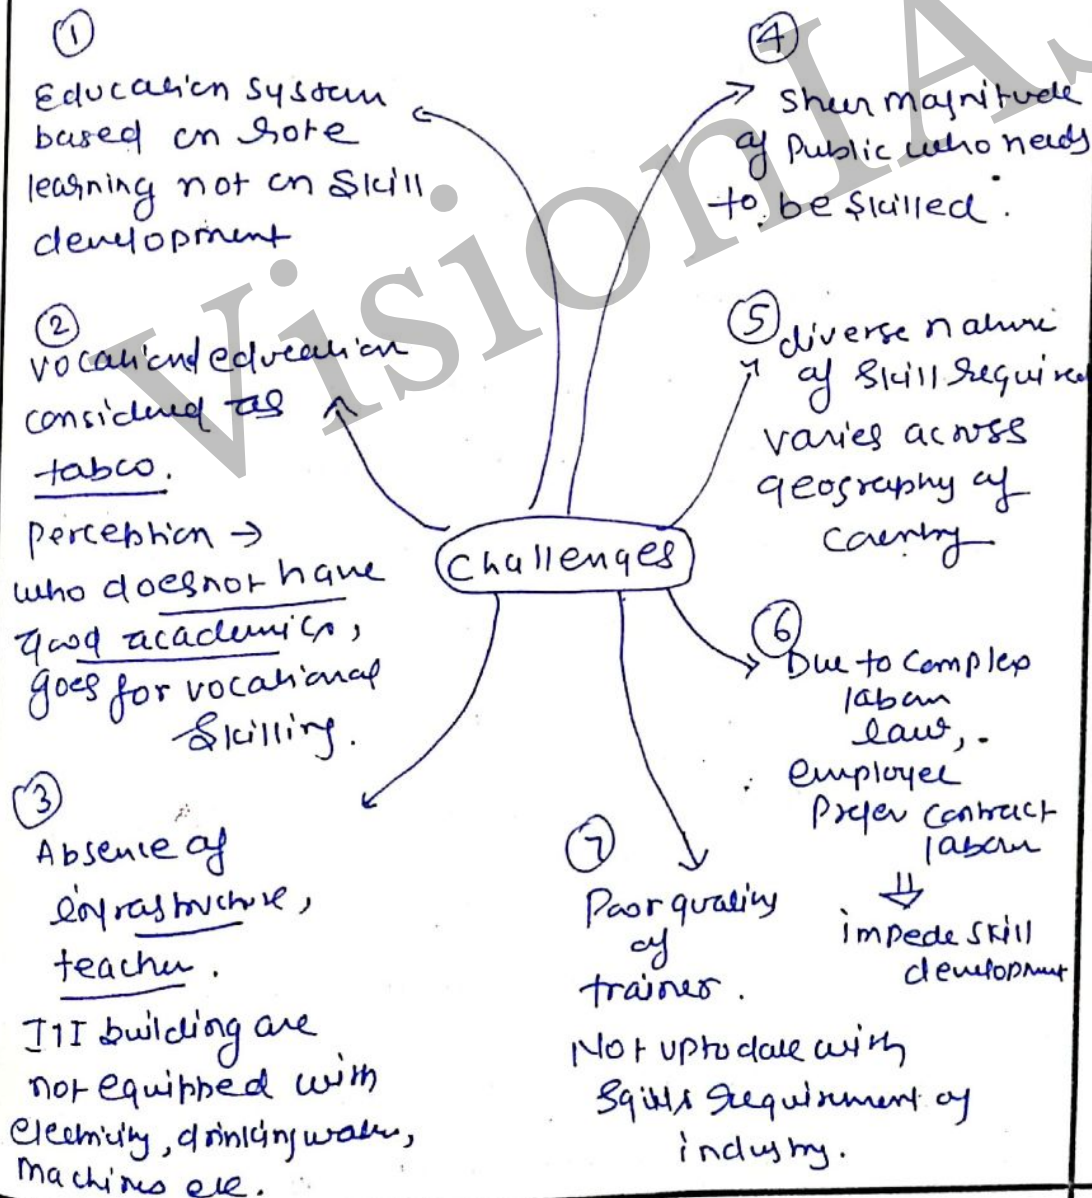 ①
Education system
based on rote
learning not on skill
development
②
vocational education
considered as
taboo.
perception →
who does not have
good academics,
goes for vocational
skilling.
③
Absence of
infrastructure,
teacher.
ITI building are
not equipped with
electricity, drinking water,
machines etc.
Challenges
④
sheer magnitude
of public who needs
to be skilled.
⑤ diverse nature
of skill required
varies across
geography of
country
⑥
Due to complex
labour
law,
employee
prefer contract
labour
⇓
impede skill
development
⑦
Poor quality
of
trainer.
Not upto date with
skills requirement of
industry.
VisionIAS